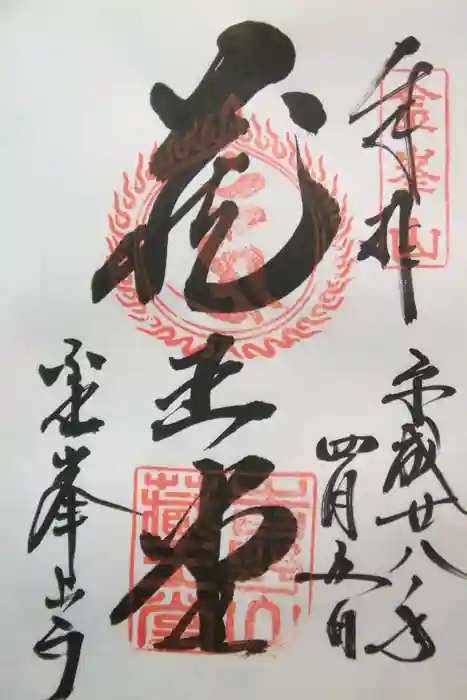 奉拝
金峯山
平成廿八年
四月五日
蔵王堂
金峯山寺